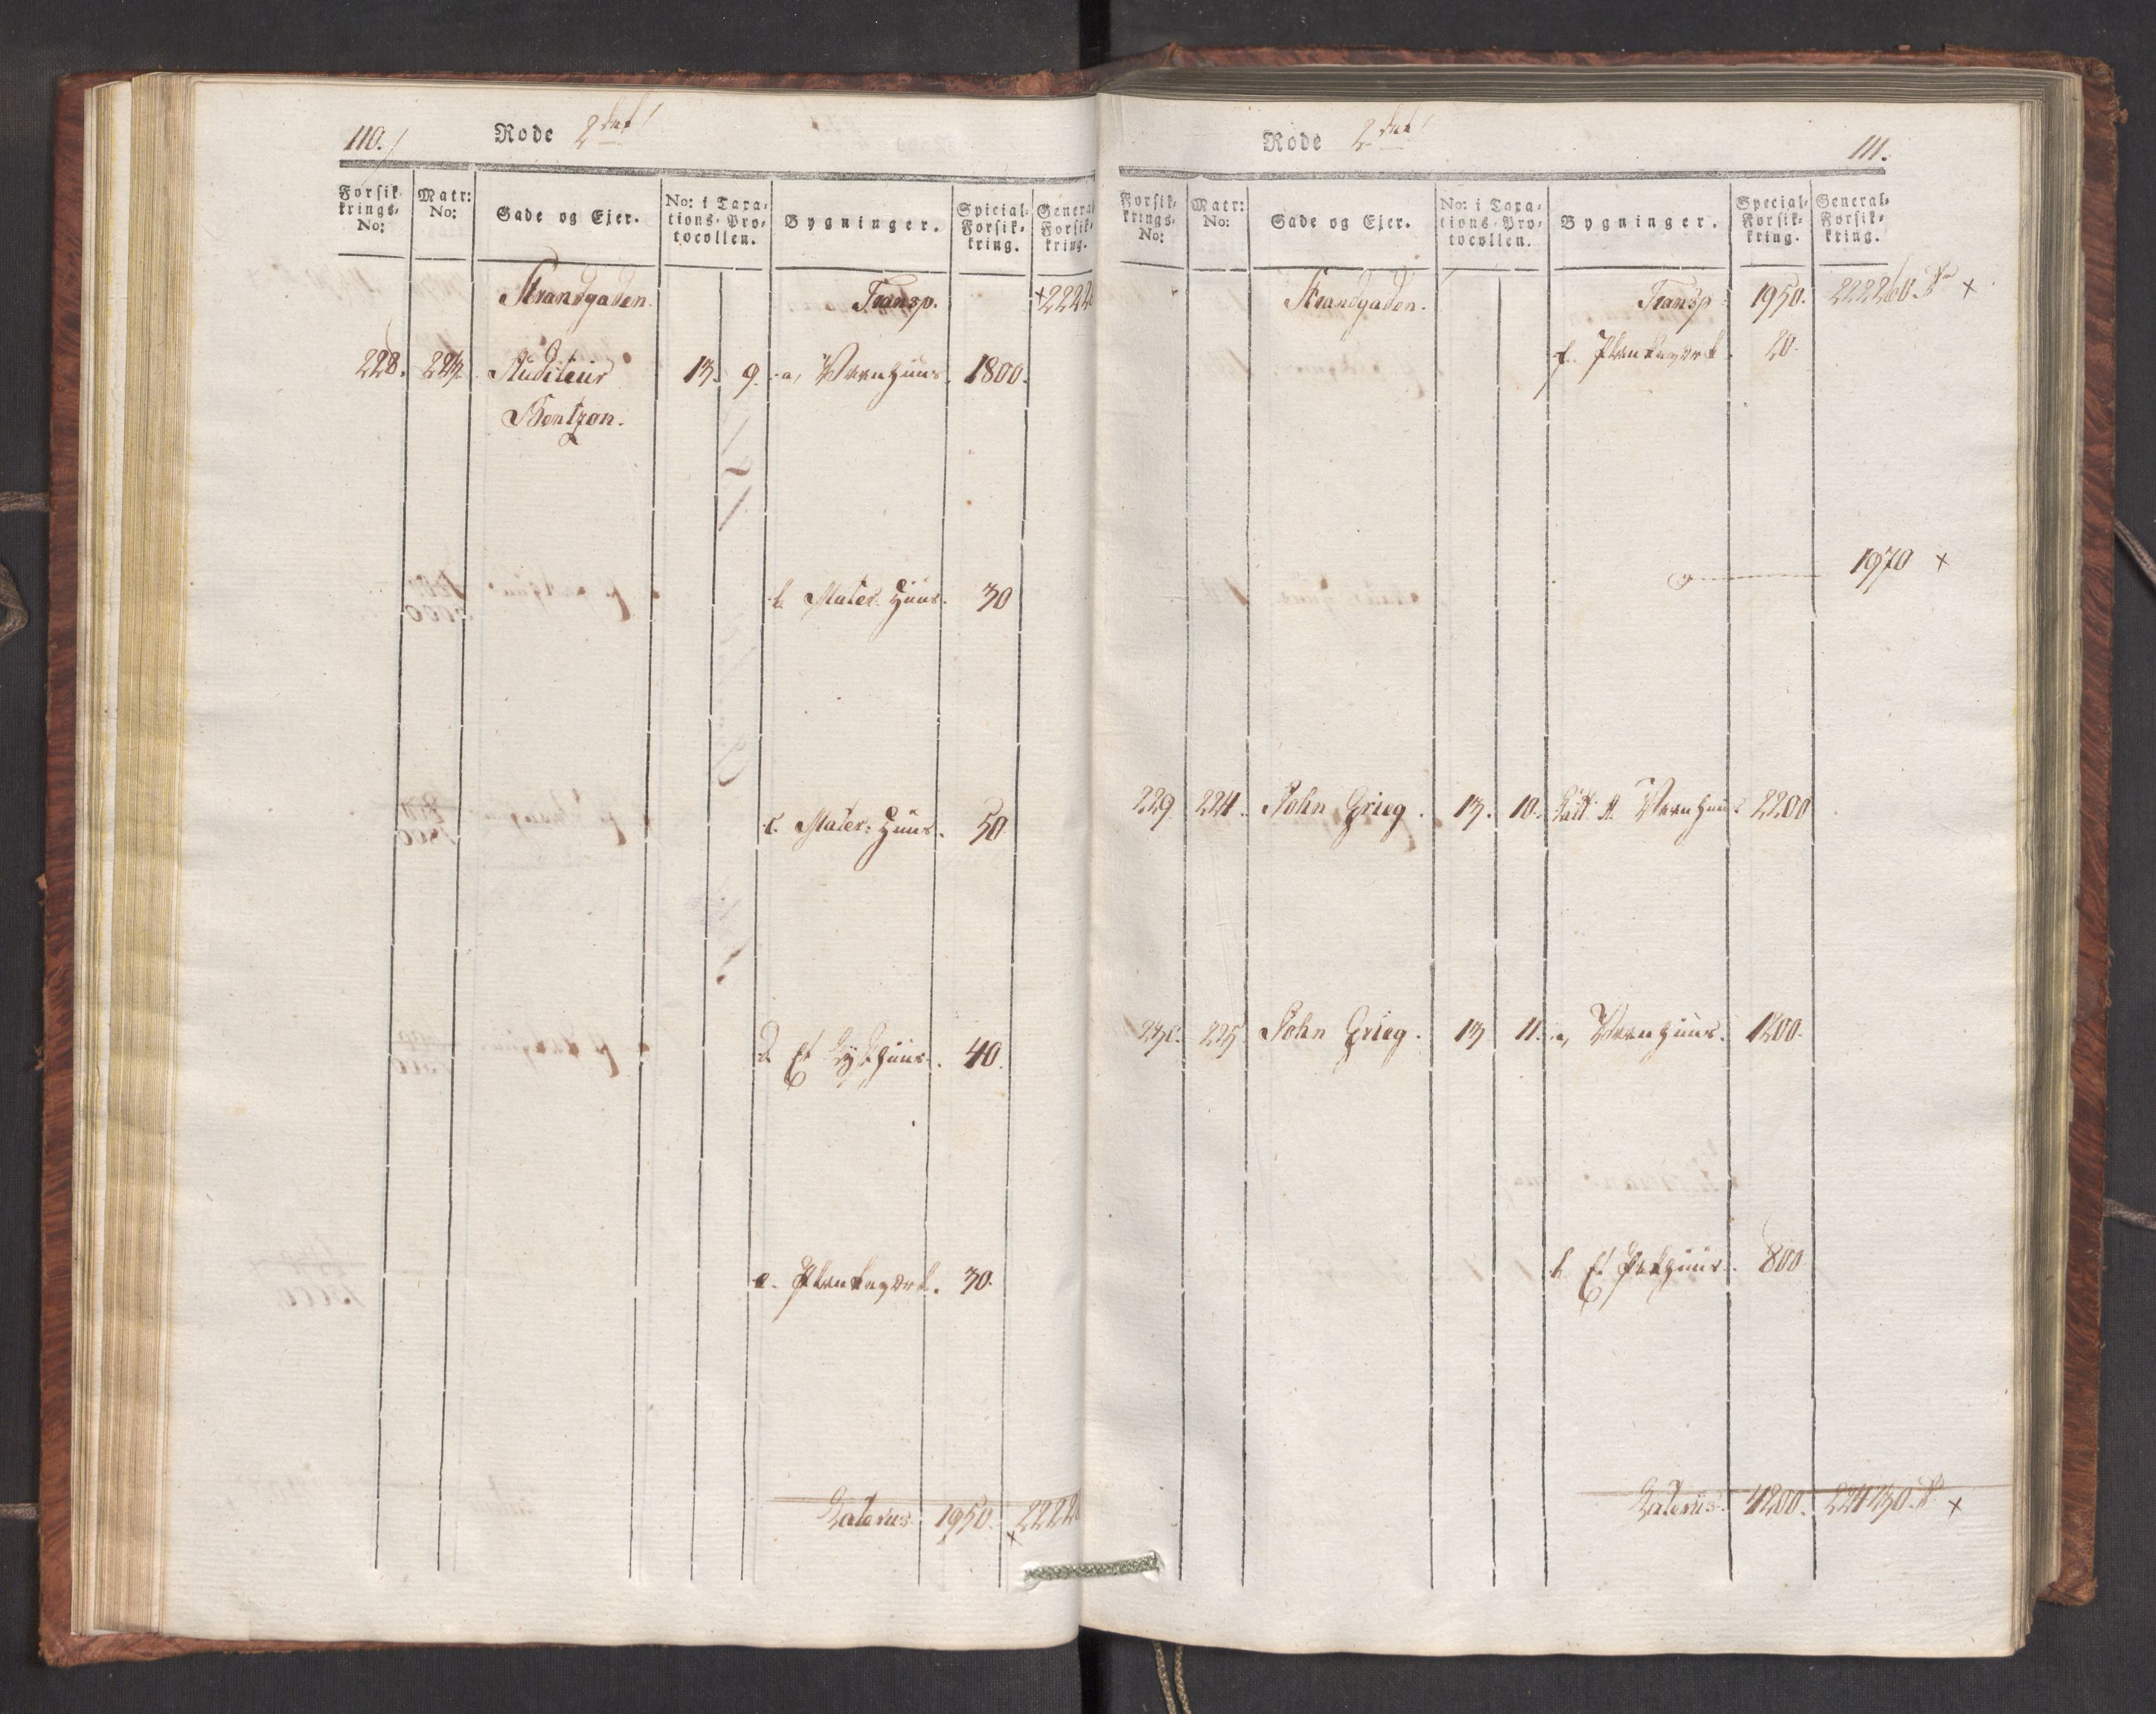 110. Rode 2det
Forsik-
krings-
No: Matr:
No: Gade og Ejer. No: i Taxa-
tions-Pro-
tocollen. Bygninger. Spicial-
Forsik-
kring. General
Forsik-
kring.
Strandgaden. Transp. 2222
228. 223. Auditeur 13. 9. a, Vaanhuus. 1800.
Bentzon.
b. Mater. Huus. 30
c. Mater: Huus. 50
d Et 40.
e. Plankeværk. 30.
Laterus. 1950. 2222
Rode 2det 111.
Forsik-
krings-
No: Matr:
No: Gade og Ejer. No: i Taxa-
tions-Pro-
tocollen. Bygninger. Special-
Forsik-
kring. General-
Forsik-
kring.
Strandgaden. Transp. 1950. 222260. x
f. Plankeværk. 20.
1970 x
229. 224. John Grieg. 13. 10. Litt. A. Vaanhuus 2200
230. 225. John Grieg. 13 11. a, Vaanhuus. 1200.
b. Et Pakhuus. 800
Laterus. 4200. 224230. x